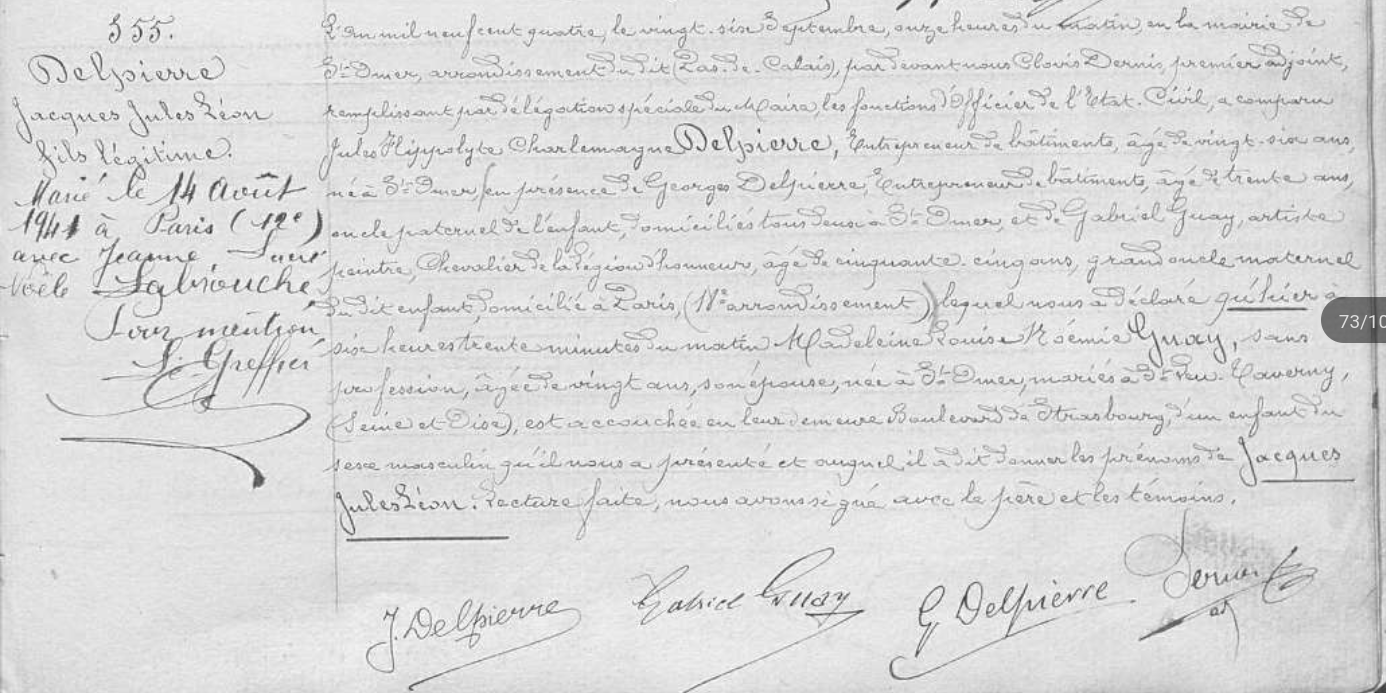 555.
Delpierre
Jacques Jules Léon
fils légitime.
Marié le 14 Août
1941 à Paris (12e)
avec Jeanne
Noële Labrouche
Pour mention
Le Greffier
L'an mil neuf cent quatre, le vingt-six Septembre, onze heures du matin, en la mairie de
St Omer, arrondissement du dit (Pas-de-Calais), par devant nous Clovis Dernis, premier adjoint,
remplissant par délégation spéciale du Maire, les fonctions d'Officier de l'Etat-Civil, a comparu
Jules Hippolyte Charlemagne Delpierre, Entrepreneur de bâtiments, âgé de vingt-six ans,
né à St Omer, en présence de Georges Delpierre, Entrepreneur de bâtiments, âgé de trente ans,
oncle paternel de l'enfant, domiciliés tous deux à St Omer, et de Gabriel Guay, artiste
peintre, Chevalier de la Légion d'honneur, âgé de cinquante-cinq ans, grand oncle maternel
du dit enfant, domicilié à Paris, ( arrondissement), lequel nous a déclaré qu'hier à
six heures trente minutes du matin Madeleine Louise Noémie Guay, sans
profession, âgée de vingt ans, son épouse, née à St Omer, mariés à St Leu-Taverny,
(Seine-et-Oise), est accouchée en leur demeure Boulevard de Strasbourg, d'un enfant du
sexe masculin qu'il nous a présenté et auquel il a dit donner les prénoms de Jacques
Jules Léon. Lecture faite, nous avons signé avec le père et les témoins.
J. Delpierre Gabriel Guay G Delpierre Dernis
73/10